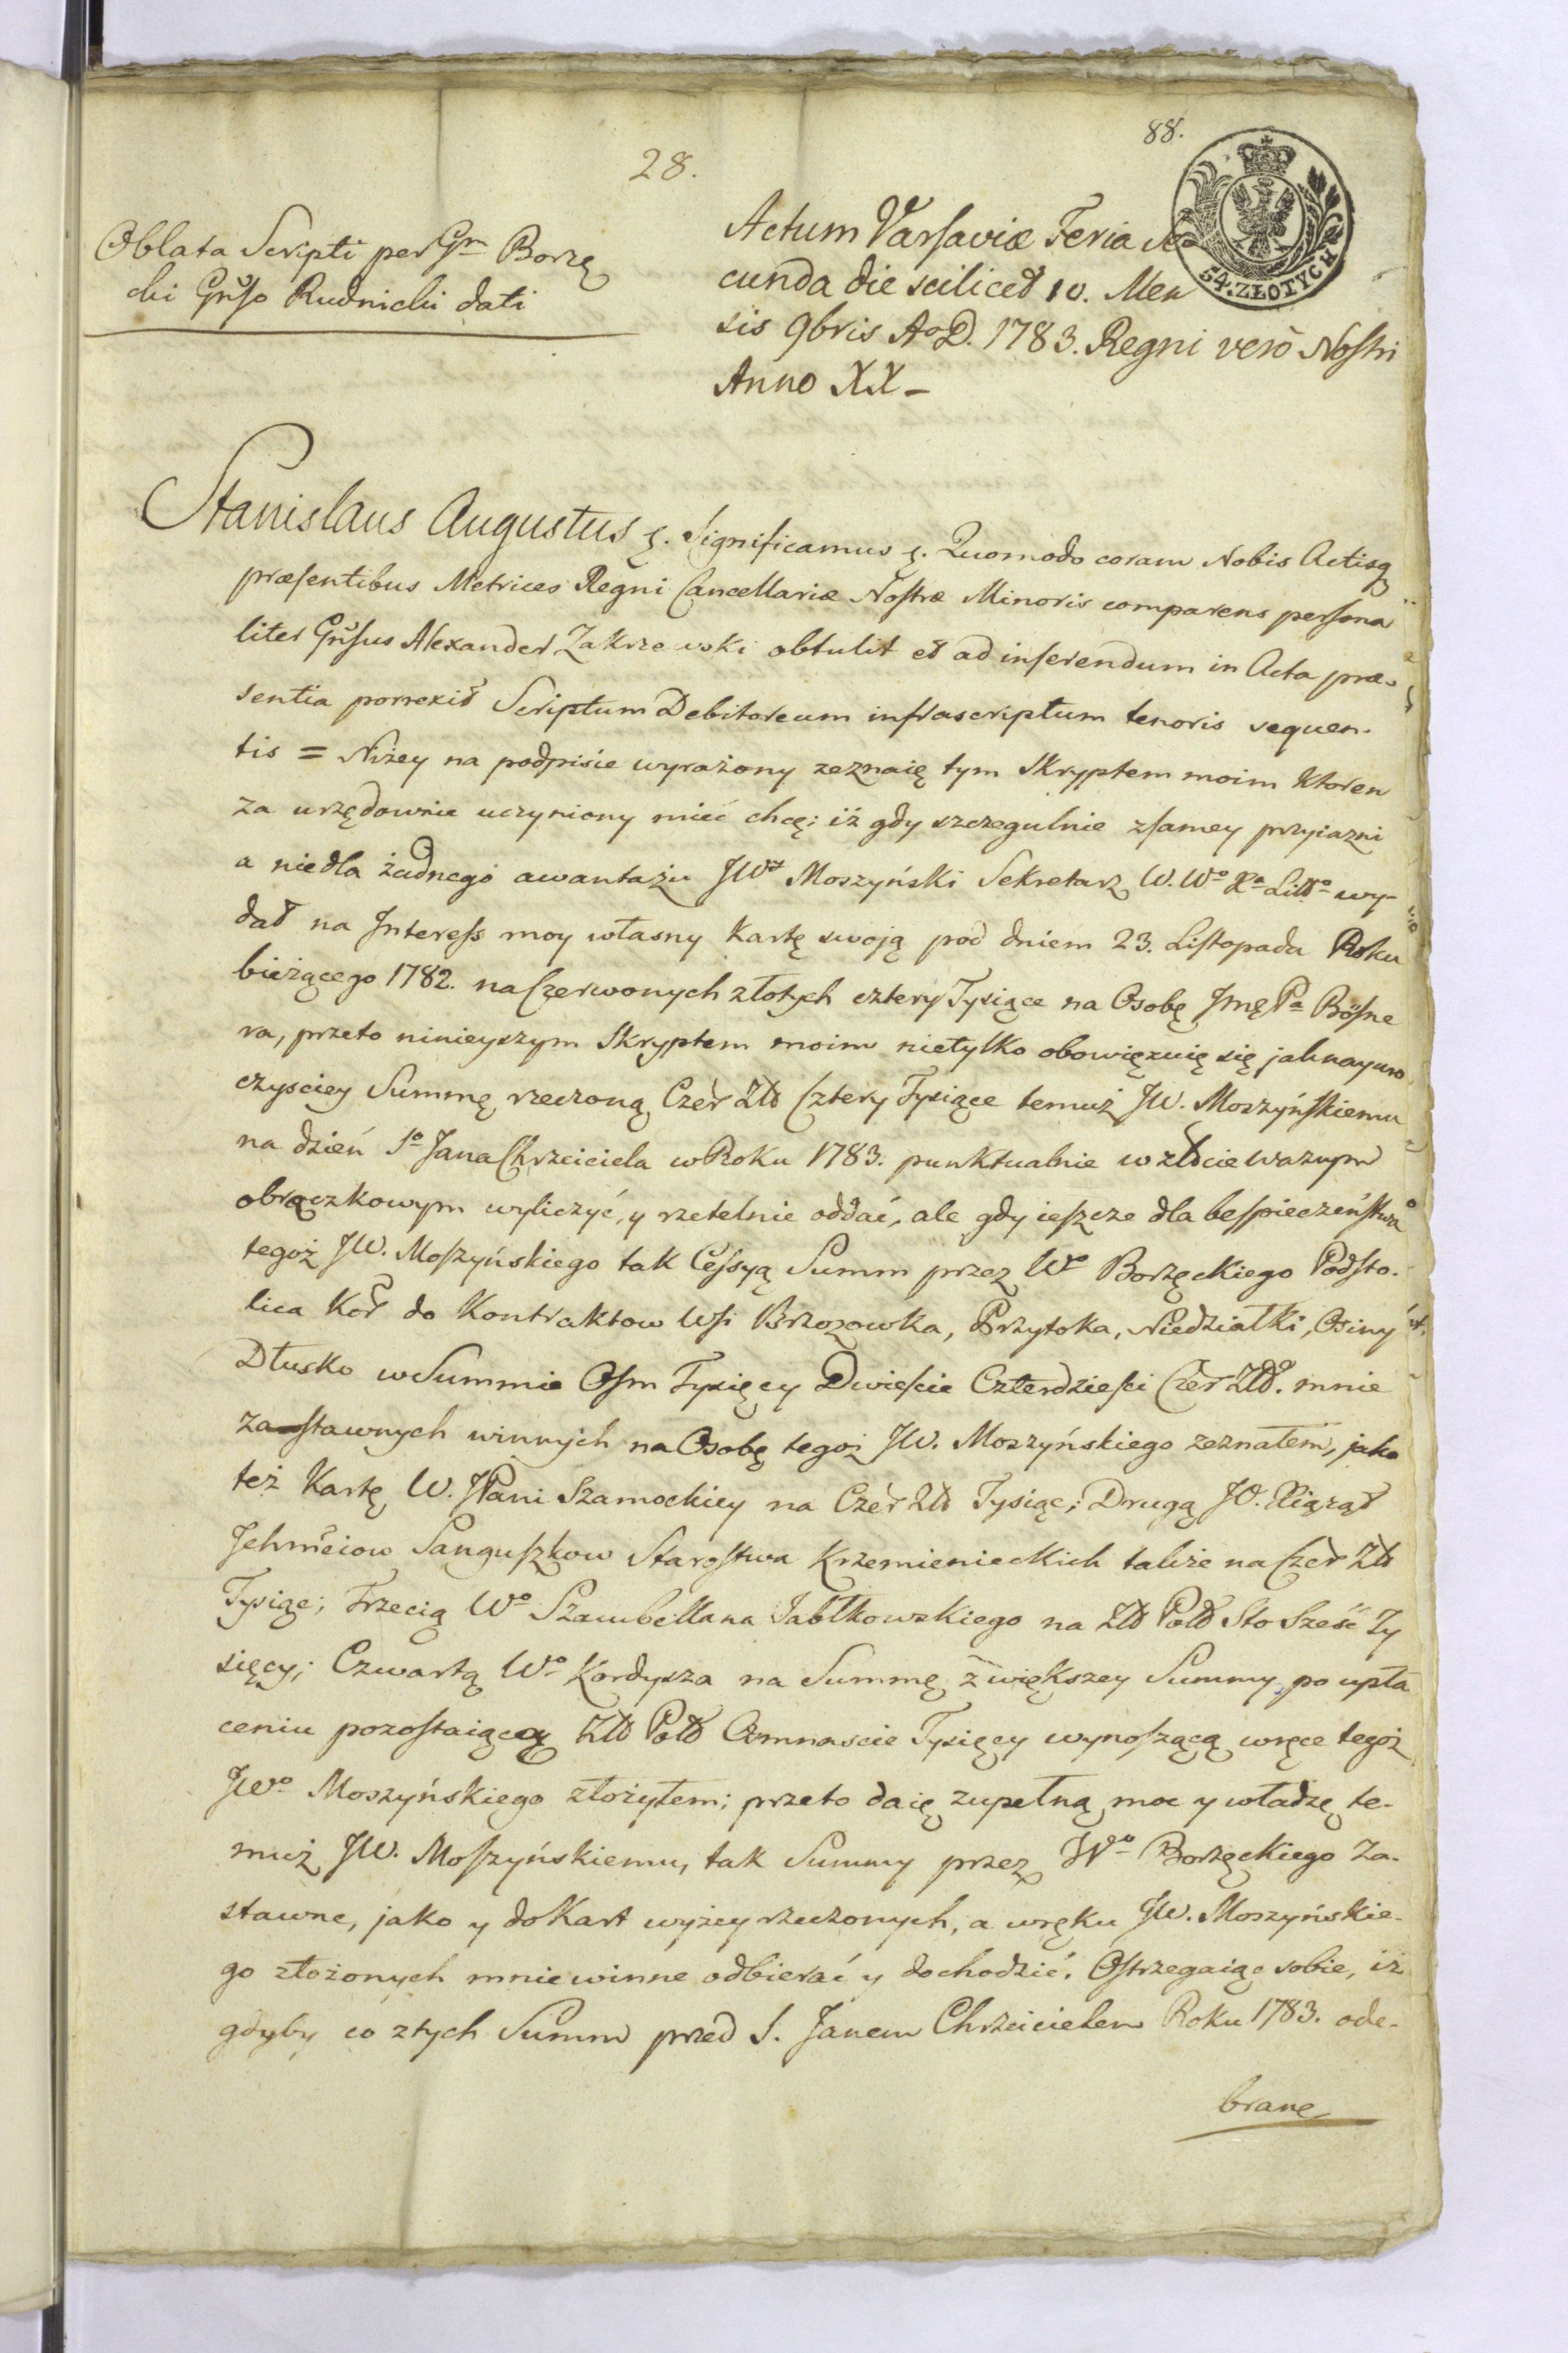 88.
28.
54. ZŁOTYCH
Oblata Scripti per Gm Borzę
cki Gnso Rudnicki dati
Actum Varsaviæ Feria Se
cunda die scilicet 10. Men
sis 9bris AoD. 1783. Regni verò Nostri
Anno XX –
Stanislaus Augustus &. Significamus &. Quomodo coram Nobis Actisq
præsentibus Metrices Regni Cancellariæ Nostræ Minoris comparens persona
liter Gnsus Alexander Zakrzewski obtulit et ad inserendum in Acta præ-
sentia porrexit Scriptum Debitoreum infrascriptum tenoris sequen-
tis = Niżey na podpisie wyrażony zeznaię tym Skryptem moim Ktoren
za urzędownie uczyniony mieć chcę; iż gdy szczegulnie zsamey przyiazni
a niedla żadnego awantażu JWz Moszyński Sekretarz W. Wo Xa Litto wy-
dał na Interess moy własny Kartę swoją pod dniem 23. Listopada Roku
bieżącego 1782. na Czerwonych złotych cztery Tysiące na Osobę Jmę Pa Bösne
ra, przeto ninieyszym Skryptem moim nietylko obowięzuię się jaknayuro
czysciey Summę rzeczoną Czer Złł Cztery Tysiące temuż JW. Moszyńskiemu
na dzień So Jana Chrzciciela w Roku 1783. punktualnie w złocie ważnym
obrączkowym wyliczyć, y rzetelnie oddać, ale gdy ieszcze dla bespieczeństwa
tegoż JW. Moszyńskiego tak Cessyą Summ przez Wo Borzęckiego Podsto-
lica Kor do Kontraktow Wsi Brzozowka, Przytoka, Niedziałki, Osiny
Dłusko w Summie Osm Tysięcy Dwieście Czterdzieści Czer Złło. mnie
zastawnych winnych na Osobę tegoż JW. Moszyńskiego zeznałem, jako
też Kartę W. JPani Szamockiey na Czer Złł Tysiąc; Drugą JO. Xiążąt
Jchmciow Sanguszkow Starostwa Krzemienieckich także na Czer Złł
Tysiąc; Trzecią Wo Szambellana Jabłkowskiego na Złł Poll Sto Sześć Ty
sięcy; Czwartą Wo Kordysza na Summę z większey Summy po upła
ceniu pozostaiącą Złł Poll Osmnascie Tysięcy wynoszącą wręce tegoż
JWo Moszyńskiego złożyłem; przeto daię zupełną moc y władzę te-
muż JW. Moszyńskiemu, tak Summy przez Wo Borzęckiego Za-
stawne, jako y do Kart wyżey rzeczonych, a wręku JW. Moszyńskie-
go złożonych mnie winne odbierać y dochodzić. Ostrzegaiąc sobie, iż
gdyby co ztych Summ przed S. Janem Chrzcicielem Roku 1783. ode-
brane